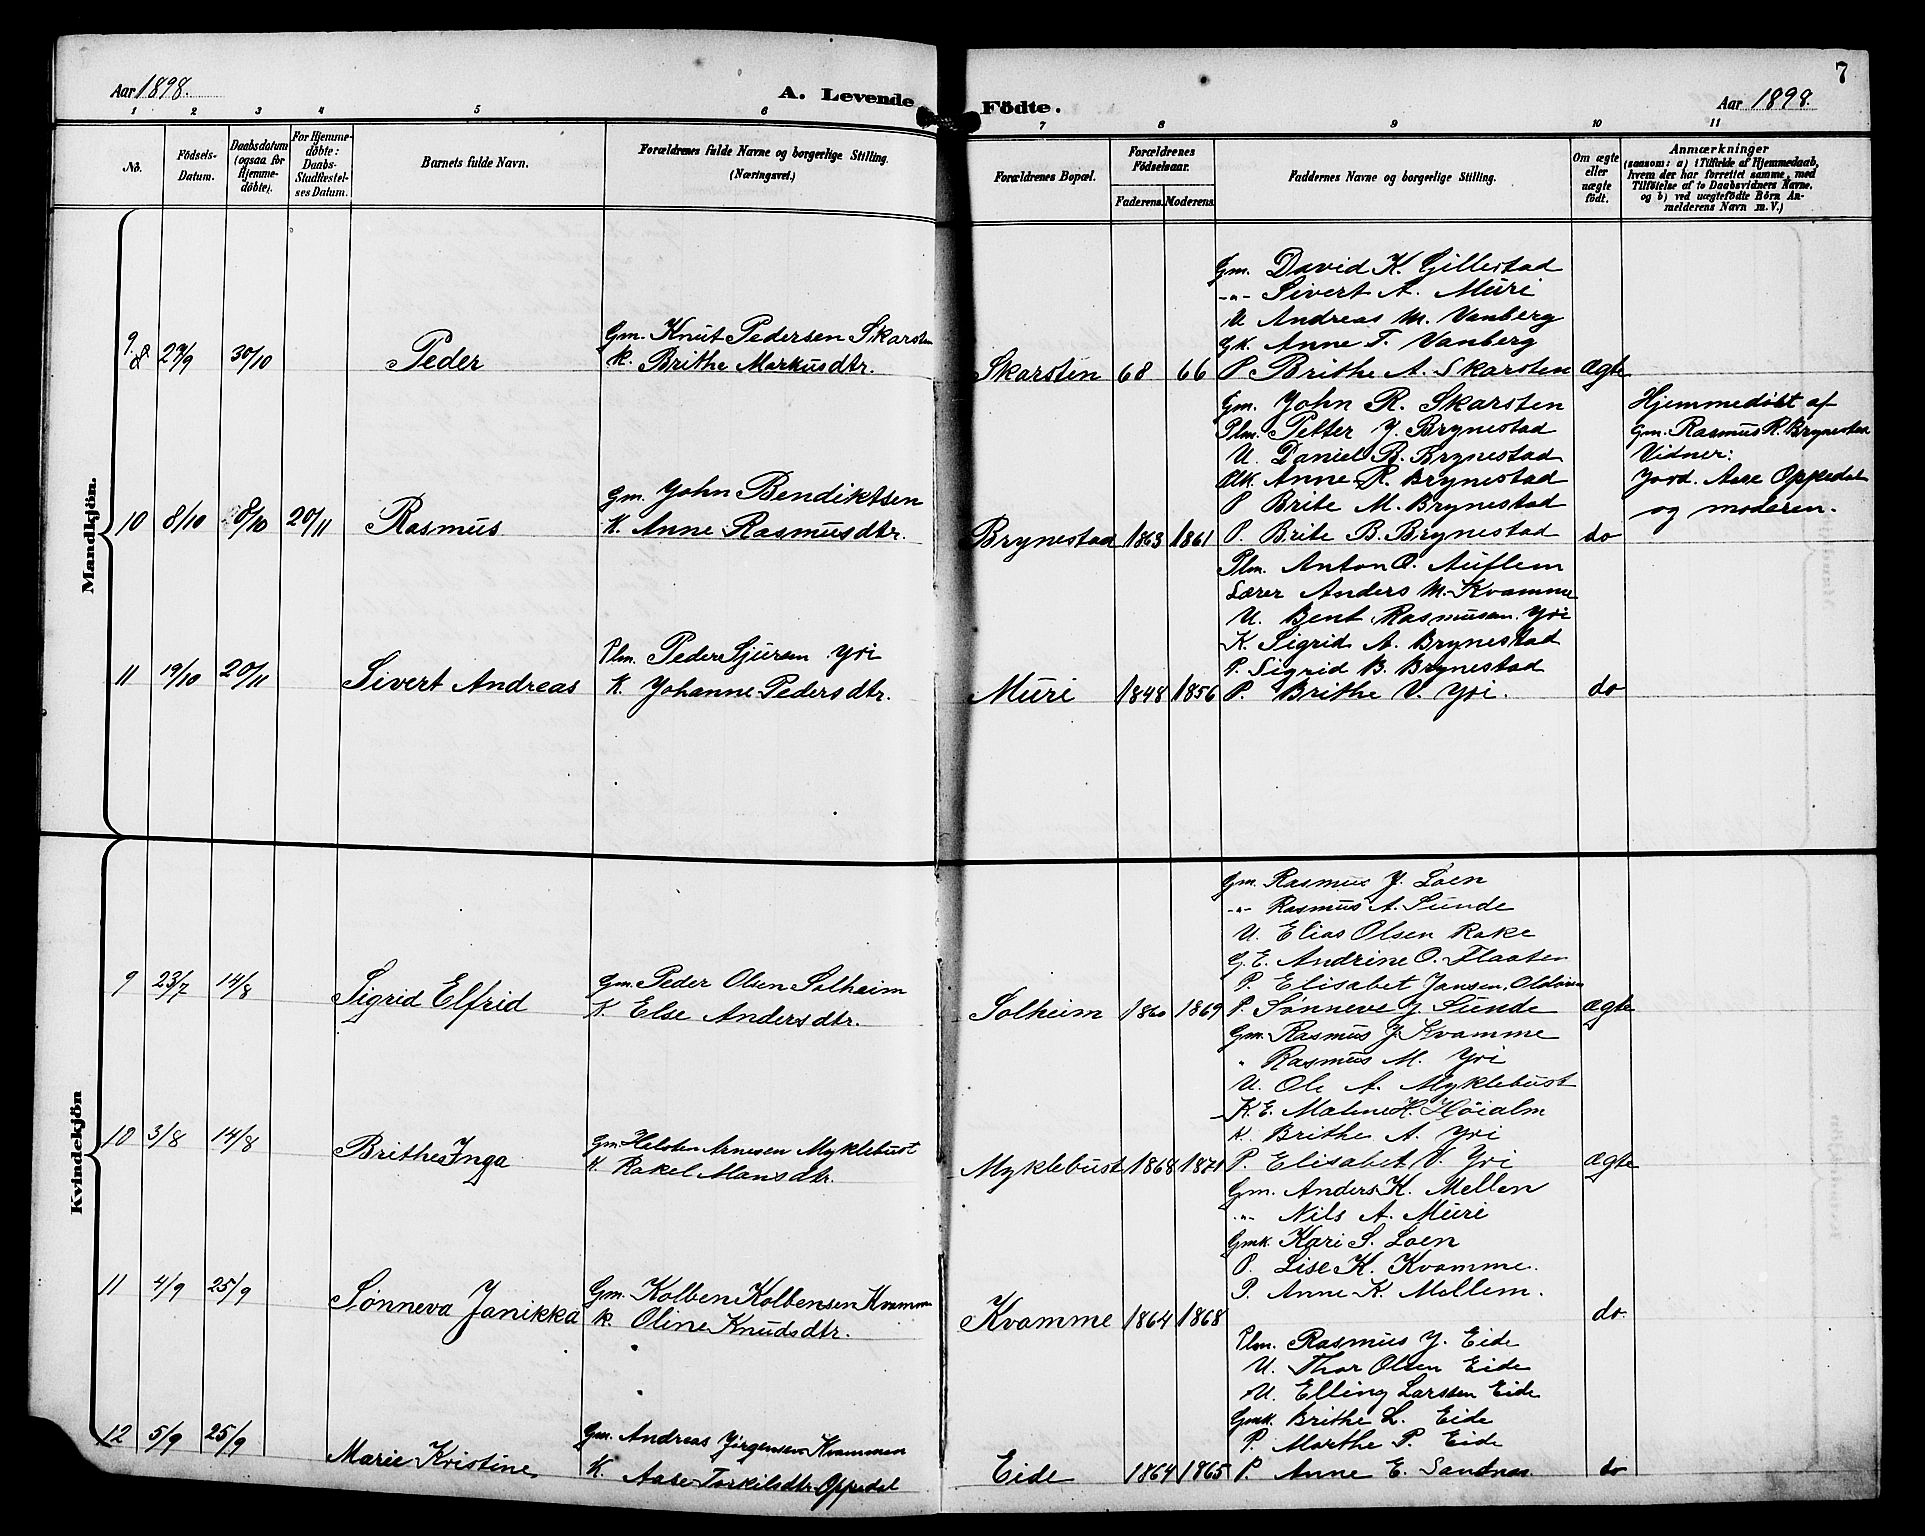 Aar 1898.
A. Levende
1 2 3 4 5 6
No.
Födsels-
Datum.
Daabsdatum
(ogsaa for
Hjemme-
döbte).
For Hjemme-
döbte:
Daabs-
Stadfæstel-
ses Datum.
Barnets fulde Navn.
Forældrenes fulde Navne og borgerlige Stilling.
(Næringsvei.)
Mandkjön.
9.
8 27/9 30/10
Peder
Gm. Knut Pedersen Skarsten
K. Brithe Markusdtr.
10 8/10 8/10 20/11
Rasmus
Gm. John Bendiktsen
K. Anne Rasmusdtr.
11 19/10 20/11
Sivert Andreas
Plm. Peder Sjursen Yri
K. Johanne Pedersdtr.
Kvindekjön
9 23/7 14/8
Sigrid Elfrid
Gm. Peder Olsen Solheim
K. Else Andersdtr.
10 3/8 14/8
Brithe Inga
Gm. Helsten Arnesen Myklebust
K. Rakel Mansdtr.
11 4/9 25/9
Sønneva Janikka
Gm. Kolben Kolbensen Kvamme
K. Oline Knudsdtr.
12 5/9 25/9
Marie Kristine
Gm. Andreas Jørgensen Kvammen
K. Aase Torkilsdtr. Oppedal
7
Födte.
Aar 1898.
7 8 9 10 11
Forældrenes Bopæl.
Forældrenes
Födselsaar.
Faderens. Moderens.
Faddernes Navne og borgerlige Stilling.
Om ægte
eller
uægte
födt.
Anmærkninger
(saasom: a) i Tilfælde af Hjemmedaab,
hvem der har forrettet samme, med
Tilföielse af to Daabsvidners Navne,
og b) ved uægtefödte Börn An-
melderens Navn m. V.)
Gm. David K. Gillestad
-"- Sivert A. Muri
U Andreas M. Vanberg
GK. Anne T. Vanberg
Skarsten 68 66 P Brithe A. Skarsten Ægte
Gm. John R. Skarsten
Plm. Petter J. Brynestad
U. Daniel B. Brynestad
Anne R. Brynestad
P Brite M. Brynestad
Brynestad 1863 1861 P. Brite B. Brynestad do
Hjemmedøbt af
Gm. Rasmus R. Brynestad
Vidner:
Jord. Aase Oppedal
og moderen.
Plm. Anton O. Auflem
Lærer Anders M. Kvamme
U. Bent Rasmusen Yri
K. Sigrid A. Brynestad
P. Sigrid B. Brynestad
Muri 1848 1856 P. Brithe V. Yri. do
Gm. Rasmus J. Loen
-"- Rasmus A. Sunde
U. Elias Olsen Rake
G.E. Andrine O. Flaaten
P. Elisabet Jansen, Oldøren
Solheim 1860 1869 P. Sønneve J. Sunde Ægte
Gm. Rasmus J. Kvamme
" Rasmus M. Yri
U. Ole A. Myklebust
K.E. Malene H. Høialm
K. Brithe A. Yri
Myklebust 1868 1871 P. Elisabet V. Yri Ægte
Gm. Anders K. Mellem
-"- Nils A. Muri
Gmk. Kari S. Loen
P. Lise K. Kvamme.
P. Anne K. Mellem.
Kvamme 1864 1868 do.
Plm. Rasmus J. Eide
U. Thor Olsen Eide
U. Elling Larssen Eide
Gmk. Brithe L. Eide
P. Marthe P. Eide
Eide 1864 1865 P. Anne E. Sandnæs. do